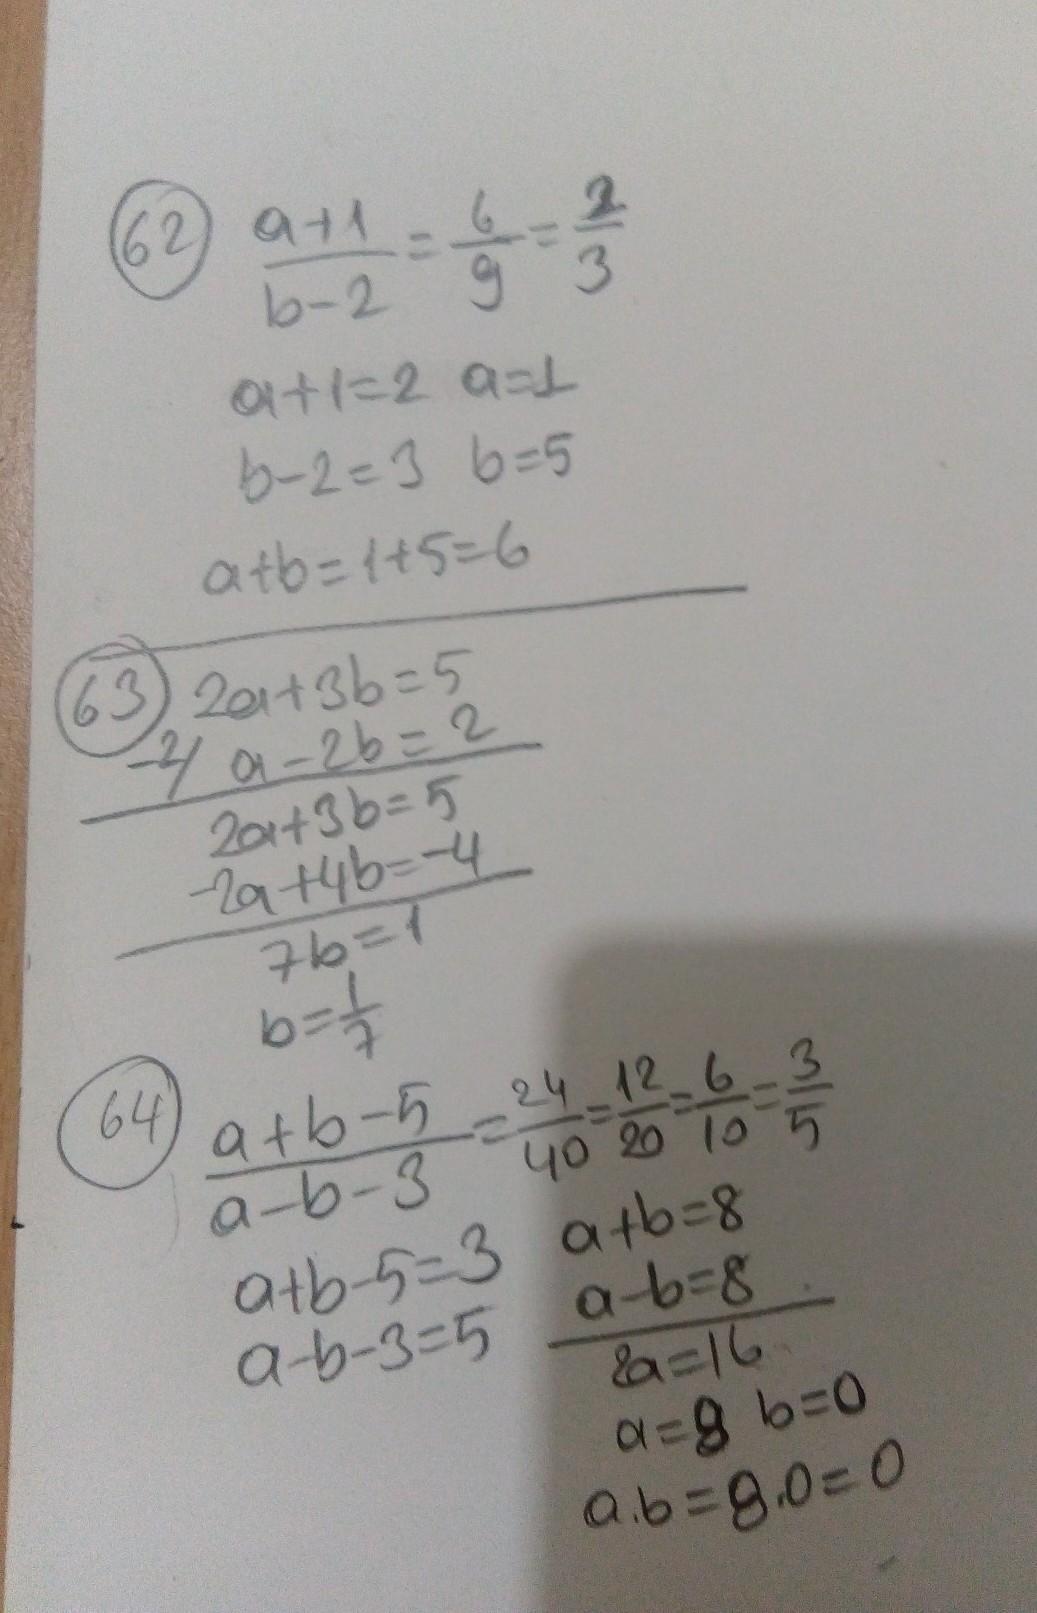 62 a+1/b-2 = 6/9 = 2/3
a+1=2 a=1
b-2=3 b=5
a+b=1+5=6
63 2a+3b=5
-2/ a-2b=2
2a+3b=5
-2a+4b=-4
7b=1
b=1/7
64 a+b-5/a-b-3 = 24/40 = 12/20 = 6/10 = 3/5
a+b-5=3
a-b-3=5
a+b=8
a-b=8
2a=16
a=8 b=0
a.b=8.0=0